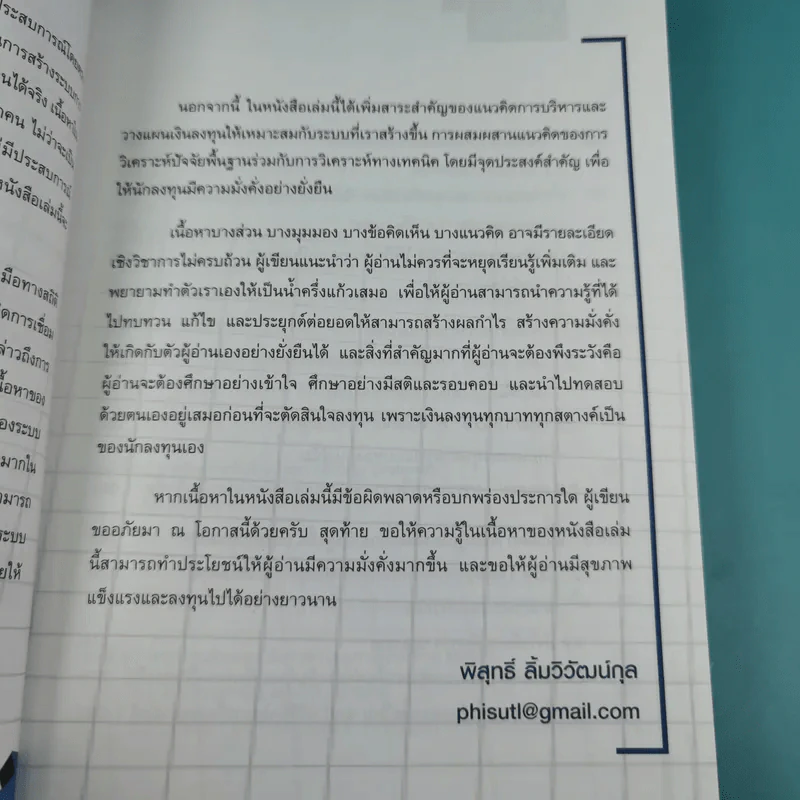 ประสบการณ์โดย
นการสร้างระบบ
นได้จริง เนื้อหา
คน ไม่ว่าจะเป็น
มีประสบการณ์
หนังสือเล่มนี้จะ
มือทางสถิติ
โดการเชื่อม
ล่าวถึงการ
นื้อหาของ
องระบบ
มากใน
ามารถ
ระบบ
ยให้
นอกจากนี้ ในหนังสือเล่มนี้ได้เพิ่มสาระสำคัญของแนวคิดการบริหารและ
วางแผนเงินลงทุนให้เหมาะสมกับระบบที่เราสร้างขึ้น การผสมผสานแนวคิดของการ
วิเคราะห์ปัจจัยพื้นฐานร่วมกับการวิเคราะห์ทางเทคนิค โดยมีจุดประสงค์สำคัญ เพื่อ
ให้นักลงทุนมีความมั่งคั่งอย่างยั่งยืน
เนื้อหาบางส่วน บางมุมมอง บางข้อคิดเห็น บางแนวคิด อาจมีรายละเอียด
เชิงวิชาการไม่ครบถ้วน ผู้เขียนแนะนำว่า ผู้อ่านไม่ควรที่จะหยุดเรียนรู้เพิ่มเติม และ
พยายามทำตัวเราเองให้เป็นน้ำครึ่งแก้วเสมอ เพื่อให้ผู้อ่านสามารถนำความรู้ที่ได้
ไปทบทวน แก้ไข และประยุกต์ต่อยอดให้สามารถสร้างผลกำไร สร้างความมั่งคั่ง
ให้เกิดกับตัวผู้อ่านเองอย่างยั่งยืนได้ และสิ่งที่สำคัญมากที่ผู้อ่านจะต้องพึงระวังคือ
ผู้อ่านจะต้องศึกษาอย่างเข้าใจ ศึกษาอย่างมีสติและรอบคอบ และนำไปทดสอบ
ด้วยตนเองอยู่เสมอก่อนที่จะตัดสินใจลงทุน เพราะเงินลงทุนทุกบาททุกสตางค์เป็น
ของนักลงทุนเอง
หากเนื้อหาในหนังสือเล่มนี้มีข้อผิดพลาดหรือบกพร่องประการใด ผู้เขียน
ขออภัยมา ณ โอกาสนี้ด้วยครับ สุดท้าย ขอให้ความรู้ในเนื้อหาของหนังสือเล่ม
นี้สามารถทำประโยชน์ให้ผู้อ่านมีความมั่งคั่งมากขึ้น และขอให้ผู้อ่านมีสุขภาพ
แข็งแรงและลงทุนไปได้อย่างยาวนาน
พิสุทธิ์ ลิ้มวิวัฒน์กุล
phisutl@gmail.com